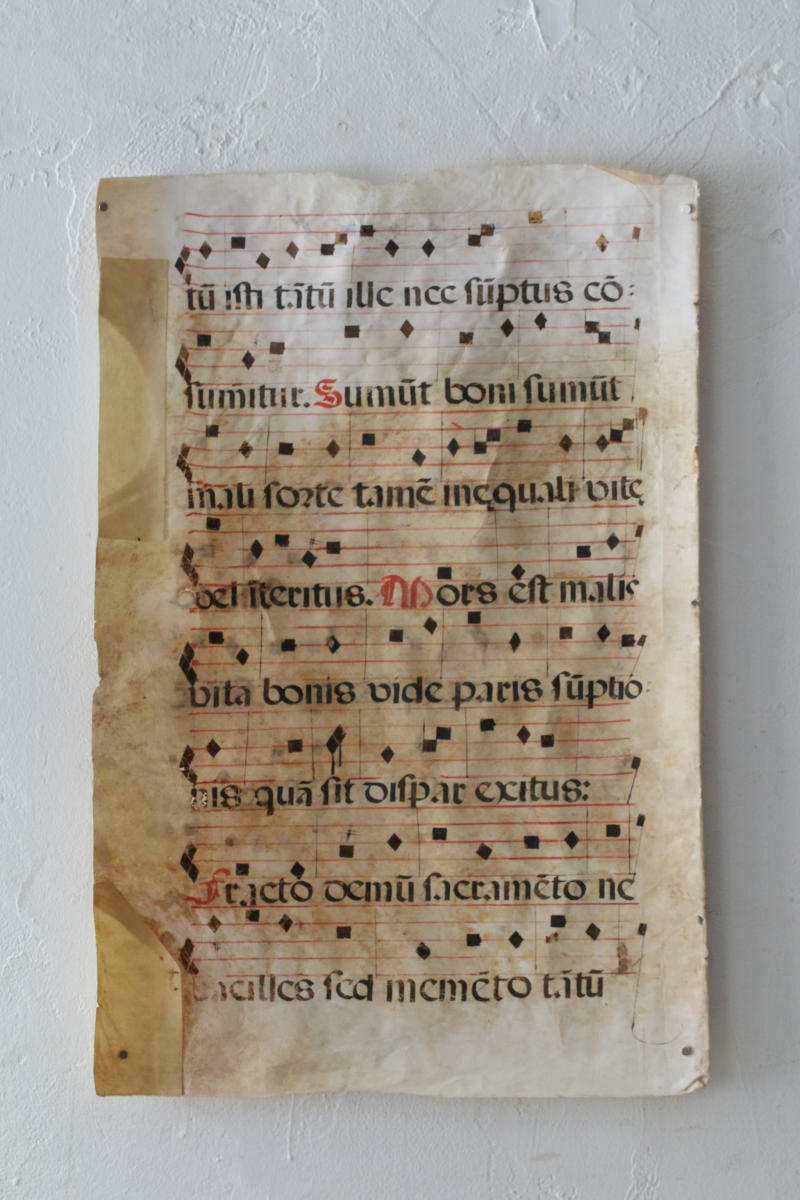 tū iſti tātū ille nec ſūptus cō:
ſumitur. Sumūt boni ſumūt
mali ſoꝛte tamē inęquali vitę
vel īteritus. Mors ēſt malis
vita bonis vide paris ſūptio
nis quā ſit diſpar exitus:
Fracto demū ſacramēto ne
vacilles ſed memēto tātū